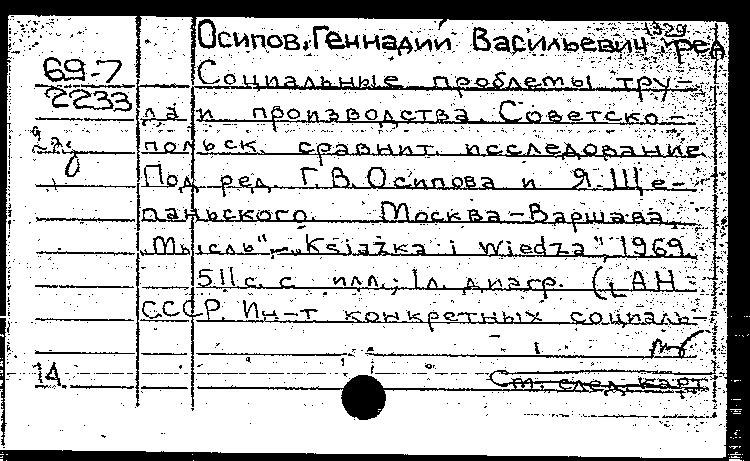 4329
Осипов, Геннадий Васильевич ред
69-7
2233
Социальные проблемы тру-
да и производства. Советско-
польск. сравнит. исследование.
Под ред. Г. В. Осипова и Я. Ще-
паньского. Москва-Варшава,
„Мысль“,-„Książka i Wiedza“, 1969.
511 с. с илл.; 1л. диагр. (АН
СССР. Ин-т конкретных социаль-
14
См. след. карт